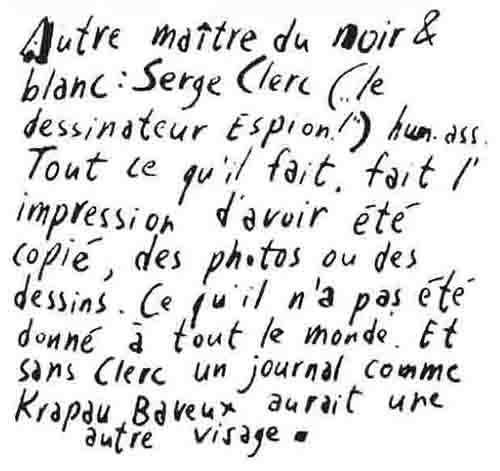 Autre maître du noir &
blanc : Serge Clerc ("le
dessinateur Espion!") hum. ass.
Tout ce qu'il fait, fait l'
impression d'avoir été
copié, des photos ou des
dessins. Ce qu'il n'a pas été
donné à tout le monde. Et
sans Clerc un journal comme
Krapau Baveux aurait une
autre visage.